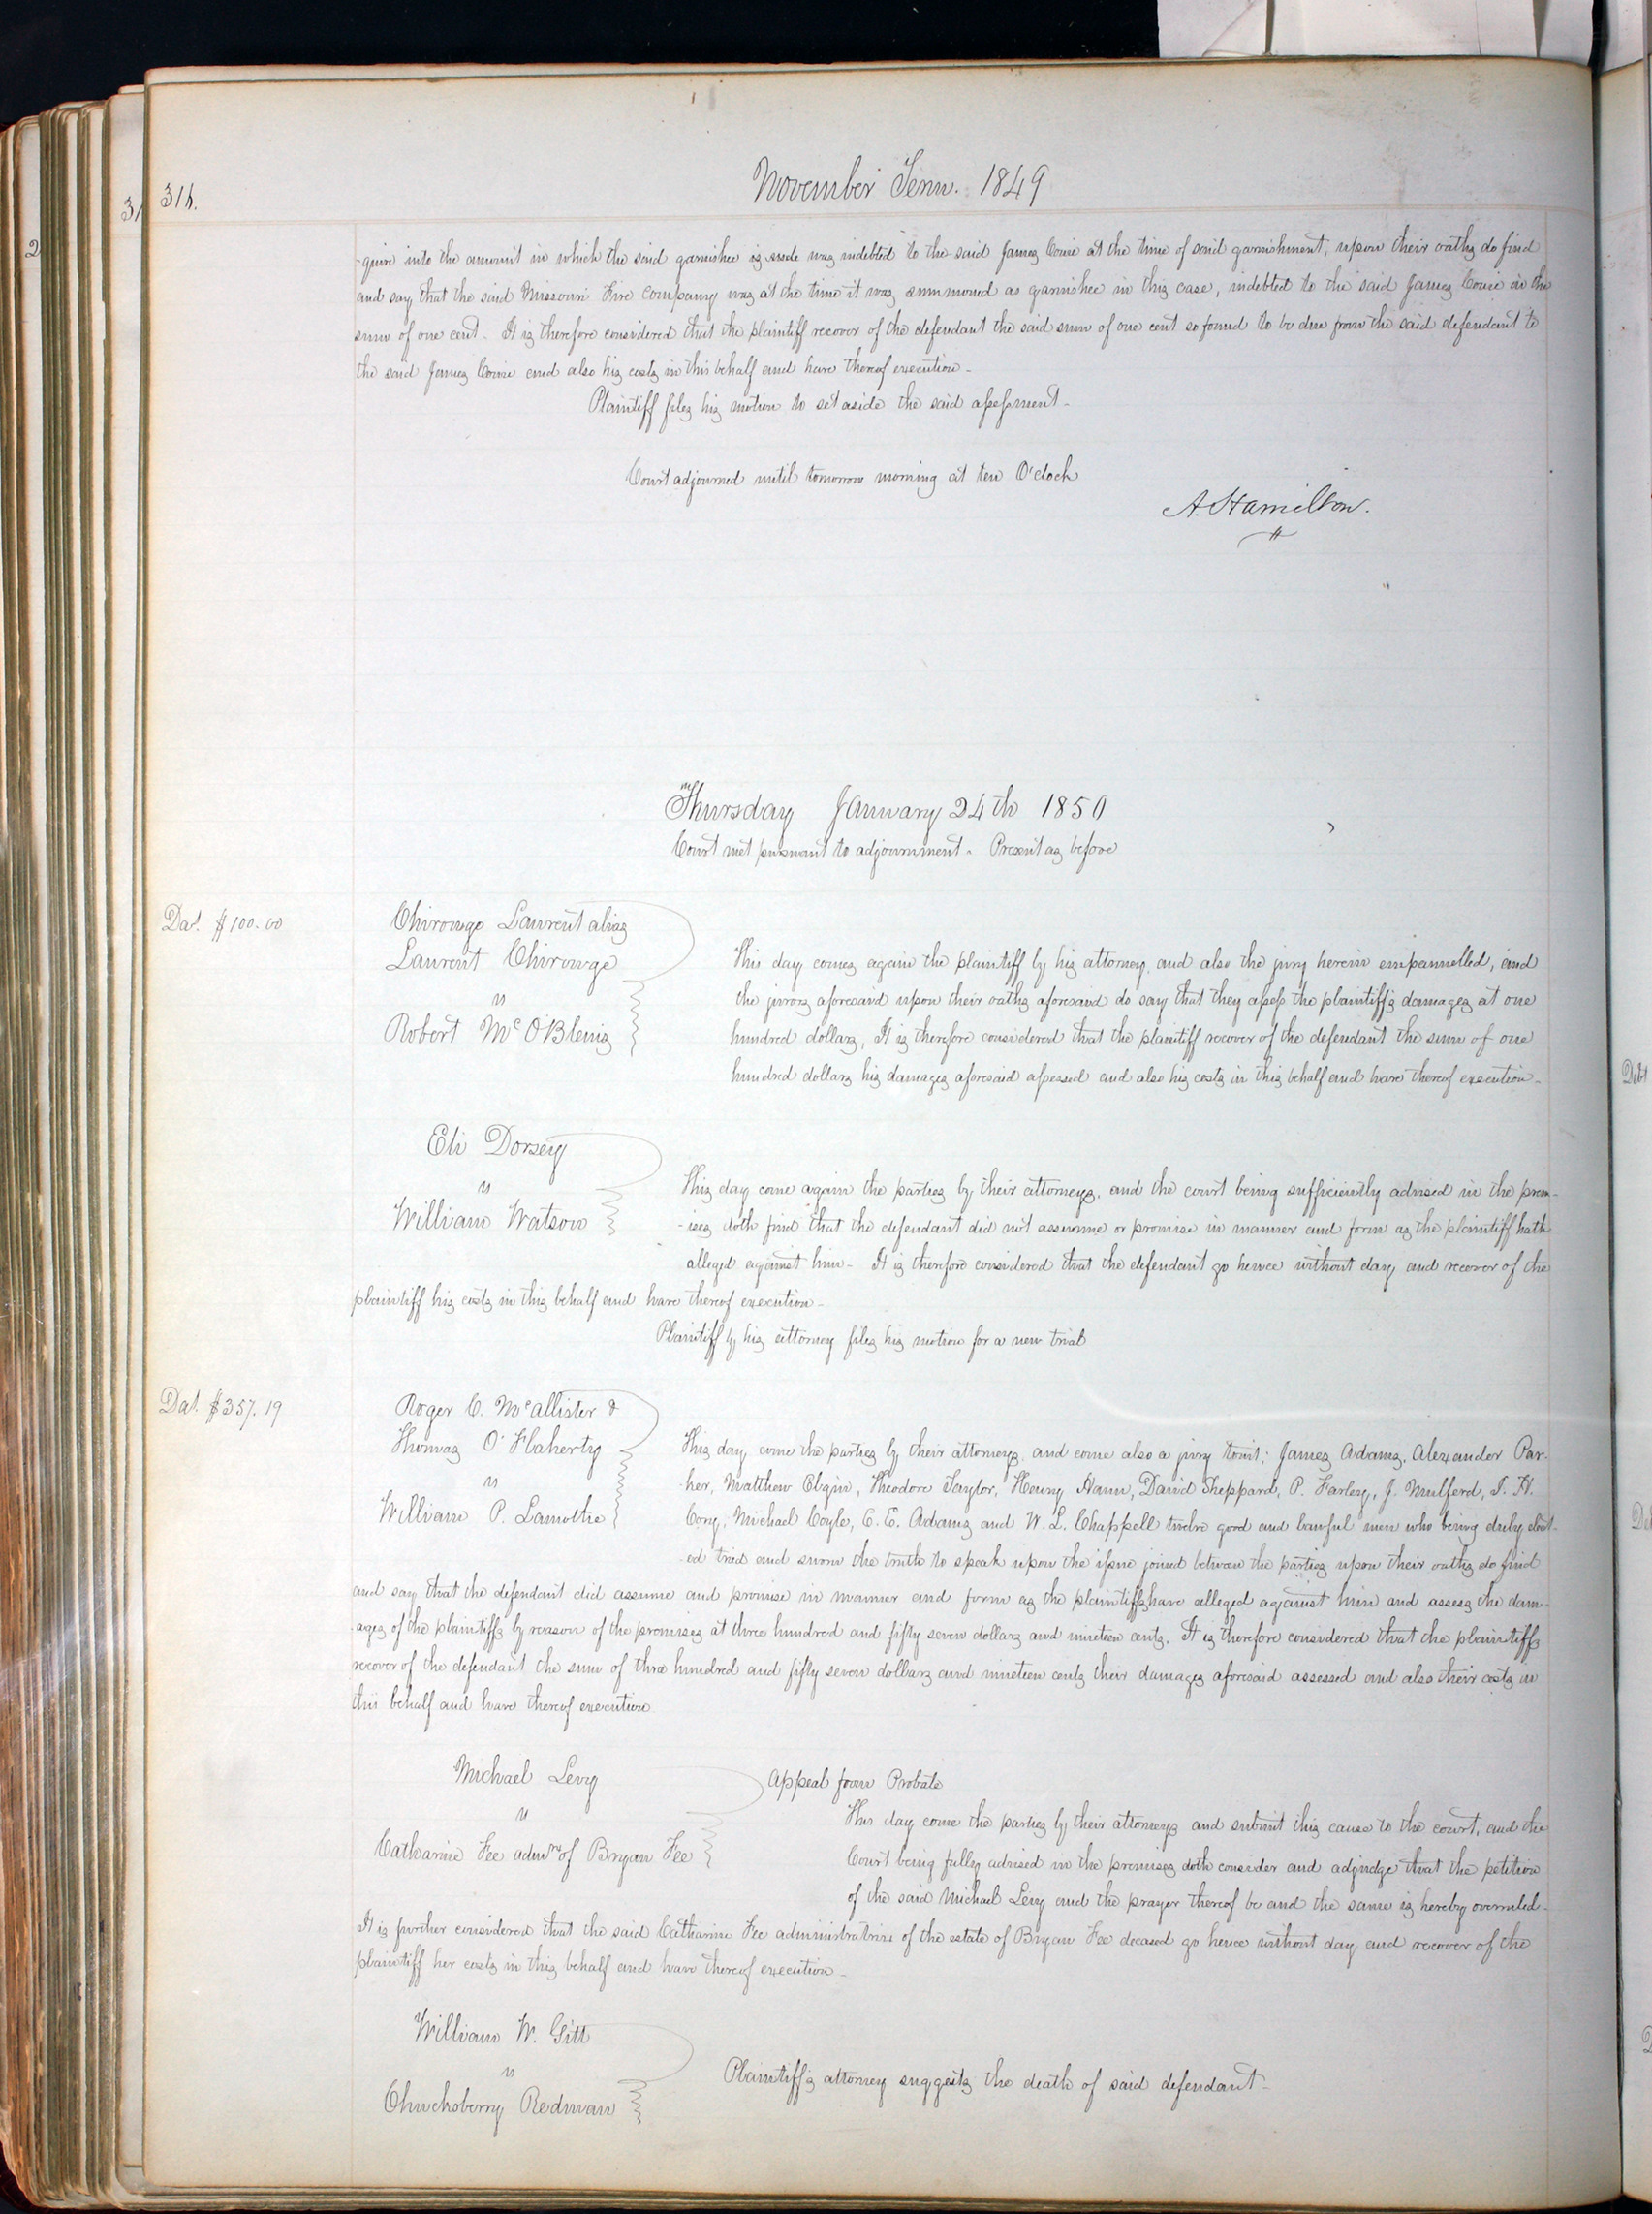 November Term. 1849
316.
-quire into the amount in which the said garnishee is made was indebted to the said James Cowie at the time of said garnishment, upon their oaths do find
and say that the said Missouri Fire Company was at the time it was summoned as garnishee in this case, indebted to the said James Cowie in the
sum of one cent. It is therefore considered that the plaintiff recover of the defendant the said sum of one cent so found to be due from the said defendant to
the said James Cowie and also his costs in this behalf and have thereof execution -
Plaintiff files his motion to set aside the said assessment -
Court adjourned until tomorrow morning at ten O'clock
A. Hamilton.
Thursday January 24th 1850
Court met pursuant to adjournment. Present as before
Da\. $100.00
Chirouge Laurent alias
Laurent Chirouge
vs
Robert Mc O'Blenis
This day comes again the plaintiff by his attorney, and also the jury herein empannelled, and
the jurors aforesaid upon their oaths aforesaid do say that they assess the plaintiff's damages at one
hundred dollars, It is therefore considered that the plaintiff recover of the defendant the sum of one
hundred dollars his damages aforesaid assessed and also his costs in this behalf and have thereof execution -
Eli Dorsey
vs
William Watson
This day come again the parties by their attorneys, and the court being sufficiently advised in the prem-
-ises doth find that the defendant did not assume or promise in manner and form as the plaintiff hath
alleged against him - It is therefore considered that the defendant go hence without day and recover of the
plaintiff his costs in this behalf and have thereof execution -
Plaintiff by his attorney files his motion for a new trial
Da\. $357.19
Roger C. McAllister &
Thomas O'Flaherty
vs
William P. Lamothe
This day come the parties by their attorneys, and come also a jury towit: James Adams, Alexander Par-
ker, Matthew Elgin, Theodore Taylor, Henry Hann, David Sheppard, P. Farley, J. Mulferd, I. H.
Cory, Michael Coyle, E. E. Adams and W. L. Chappell twelve good and lawful men who being duly elect-
-ed tried and sworn the truth to speak upon the issue joined between the parties upon their oaths do find
and say that the defendant did assume and promise in manner and form as the plaintiffs have alleged against him and assess the dam-
-ages of the plaintiffs by reason of the premises at three hundred and fifty seven dollars and nineteen cents. It is therefore considered that the plaintiffs
recover of the defendant the sum of three hundred and fifty seven dollars and nineteen cents their damages aforesaid assessed and also their costs in
this behalf and have thereof execution
Michael Levy
vs
Catharine Fee admrx of Bryan Fee
Appeal from Probate
This day come the parties by their attorneys and submit this cause to the court; and the
Court being fully advised in the premises doth consider and adjudge that the petition
of the said Michael Levy and the prayer thereof be and the same is hereby overruled -
It is further considered that the said Catharine Fee administratrix of the estate of Bryan Fee deceased go hence without day and recover of the
plaintiff her costs in this behalf and have thereof execution -
William W. Gitt
vs
Chuckberry Redman
Plaintiff's attorney suggests the death of said defendant -